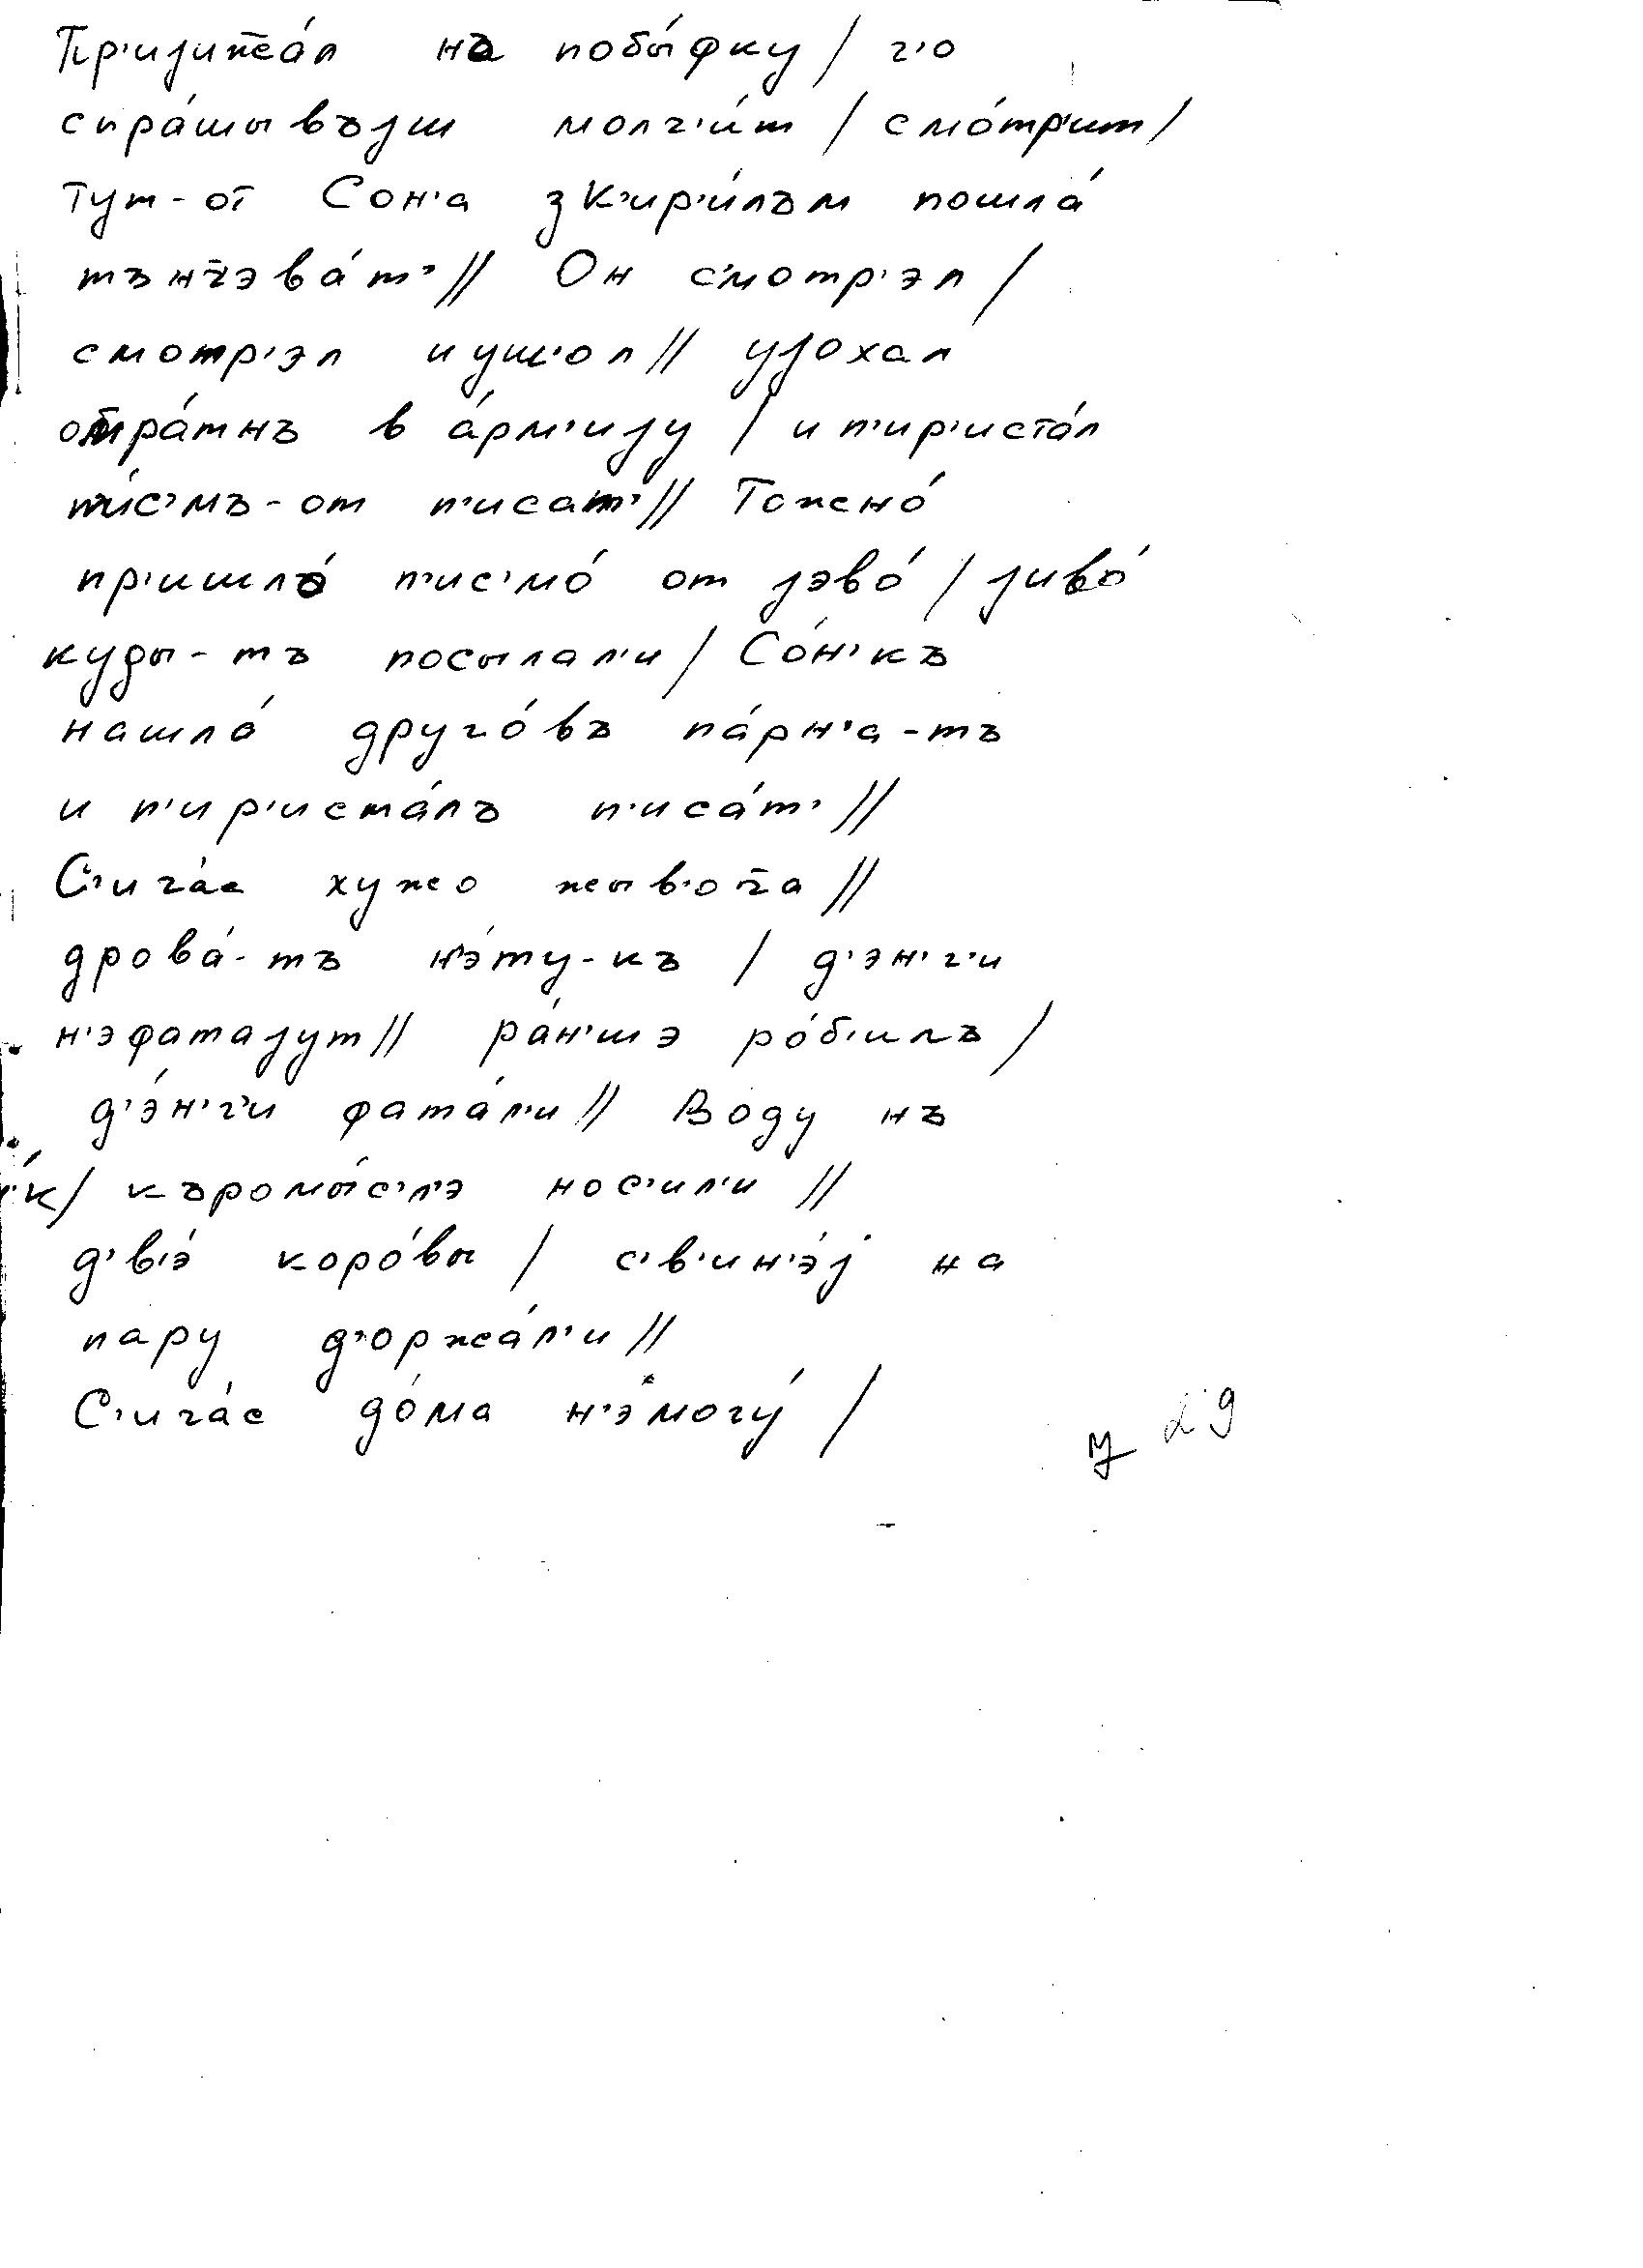 Пр'иjиж̅а́л на побы́фку / ч'о
спра́шывъjш молч'и́т / смо́тр'ит /
Тут-от Сон'а зК'ир'и́лъм пошла́
тънч̅эва́т' // Он с'мотр'эл /
смотр'эл и уш'ол // уjохал
обра́тнъ в а́рм'иjу / и п'ир'иста́л
п'и́с'мъ-от п'исат' // Тожно́
пр'ишло́ п'ис'мо́ от jэво́ / jиво́
куды-тъ посылал'и / Со́н'къ
нашла́ друго́въ па́рн'а-тъ
и п'ир'иста́лъ п'иса́т' //
С'ича́с хужо жыв'оч̅а //
дрова́-тъ н'э́ту-къ / д'эн'г'и
н'эфатаjут // ра́н'шэ ро́б'илъ /
д'э́н'г'и фата́л'и // Воду нъ
к / къромы́с'л'э нос'ил'и //
д'в'э́ коро́вы / с'в'ин'э́j на
пару д'оржа́л'и //
С'ича́с до́ма н'э могу́ /
29